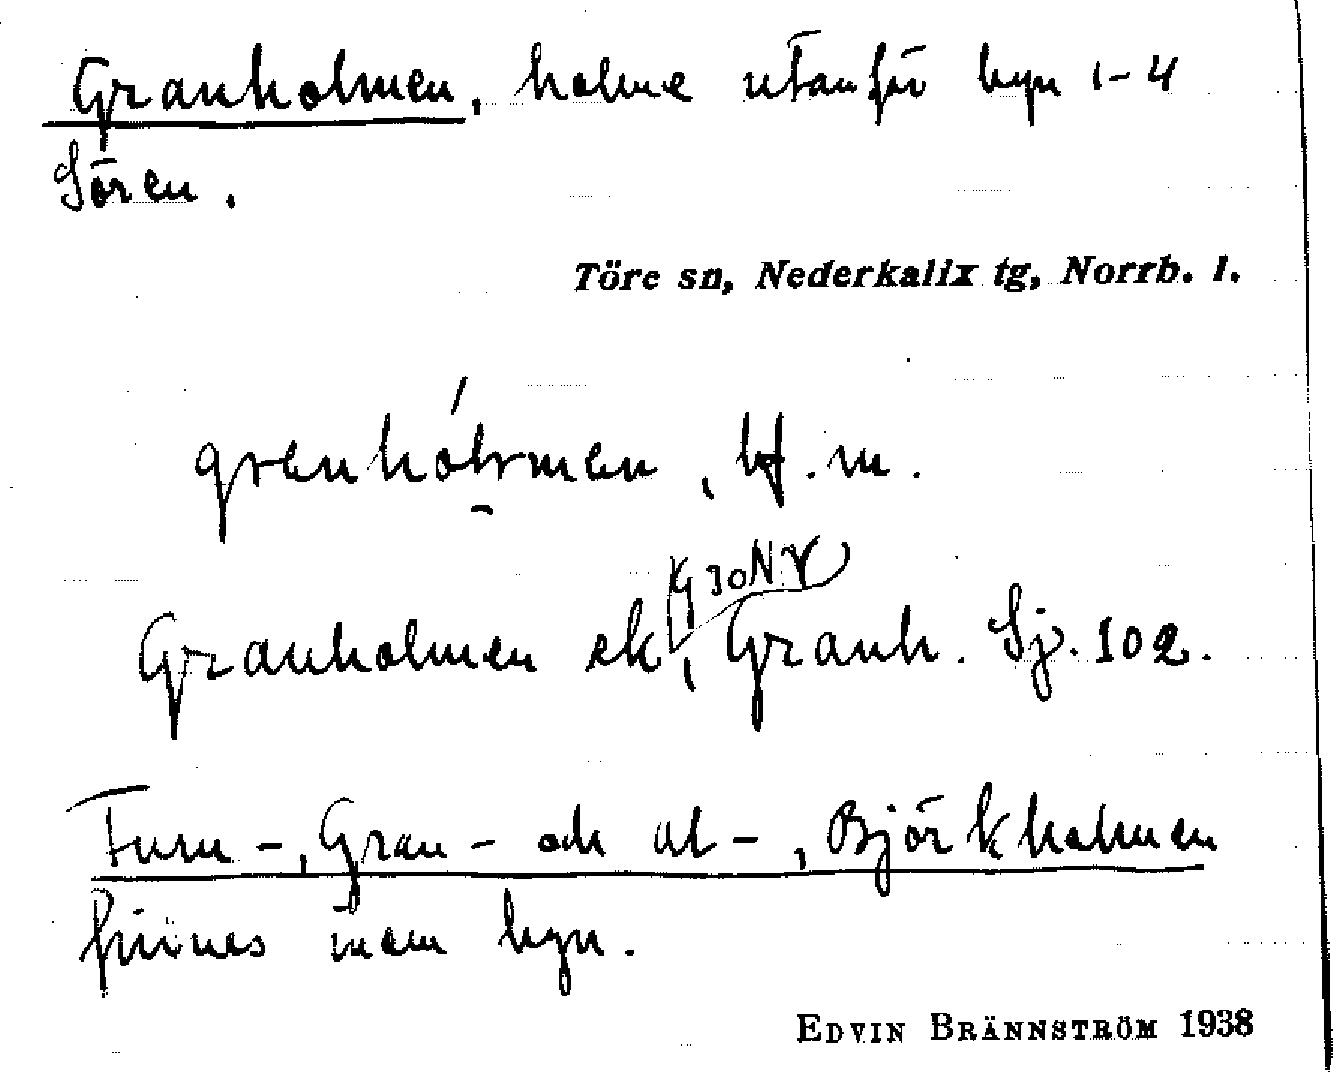 Granholmen, holme utanför byn 1-4
Sören.
Töre sn, Nederkalix tg, Norrb. l.
bf. m.
G 30 NV
Granholmen ek, Granh. Sj. 102.
Furu-, Gran- och al-, Björkholmen
finnes inom byn.
EDVIN BRÄNNSTRÖM 1938